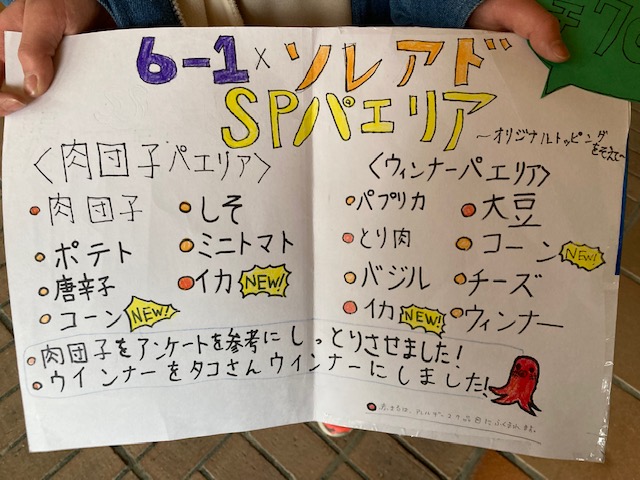 6-1×ソレアド
SPパエリア
〜オリジナルトッピングをそえて〜
〈肉団子パエリア〉
肉団子
ポテト
唐辛子
コーン NEW!
しそ
ミニトマト
イカ NEW!
〈ウィンナーパエリア〉
パプリカ
とり肉
バジル
イカ NEW!
大豆
コーン NEW!
チーズ
ウィンナー
肉団子をアンケートを参考にしっとりさせました!
ウインナーをタコさんウインナーにしました!